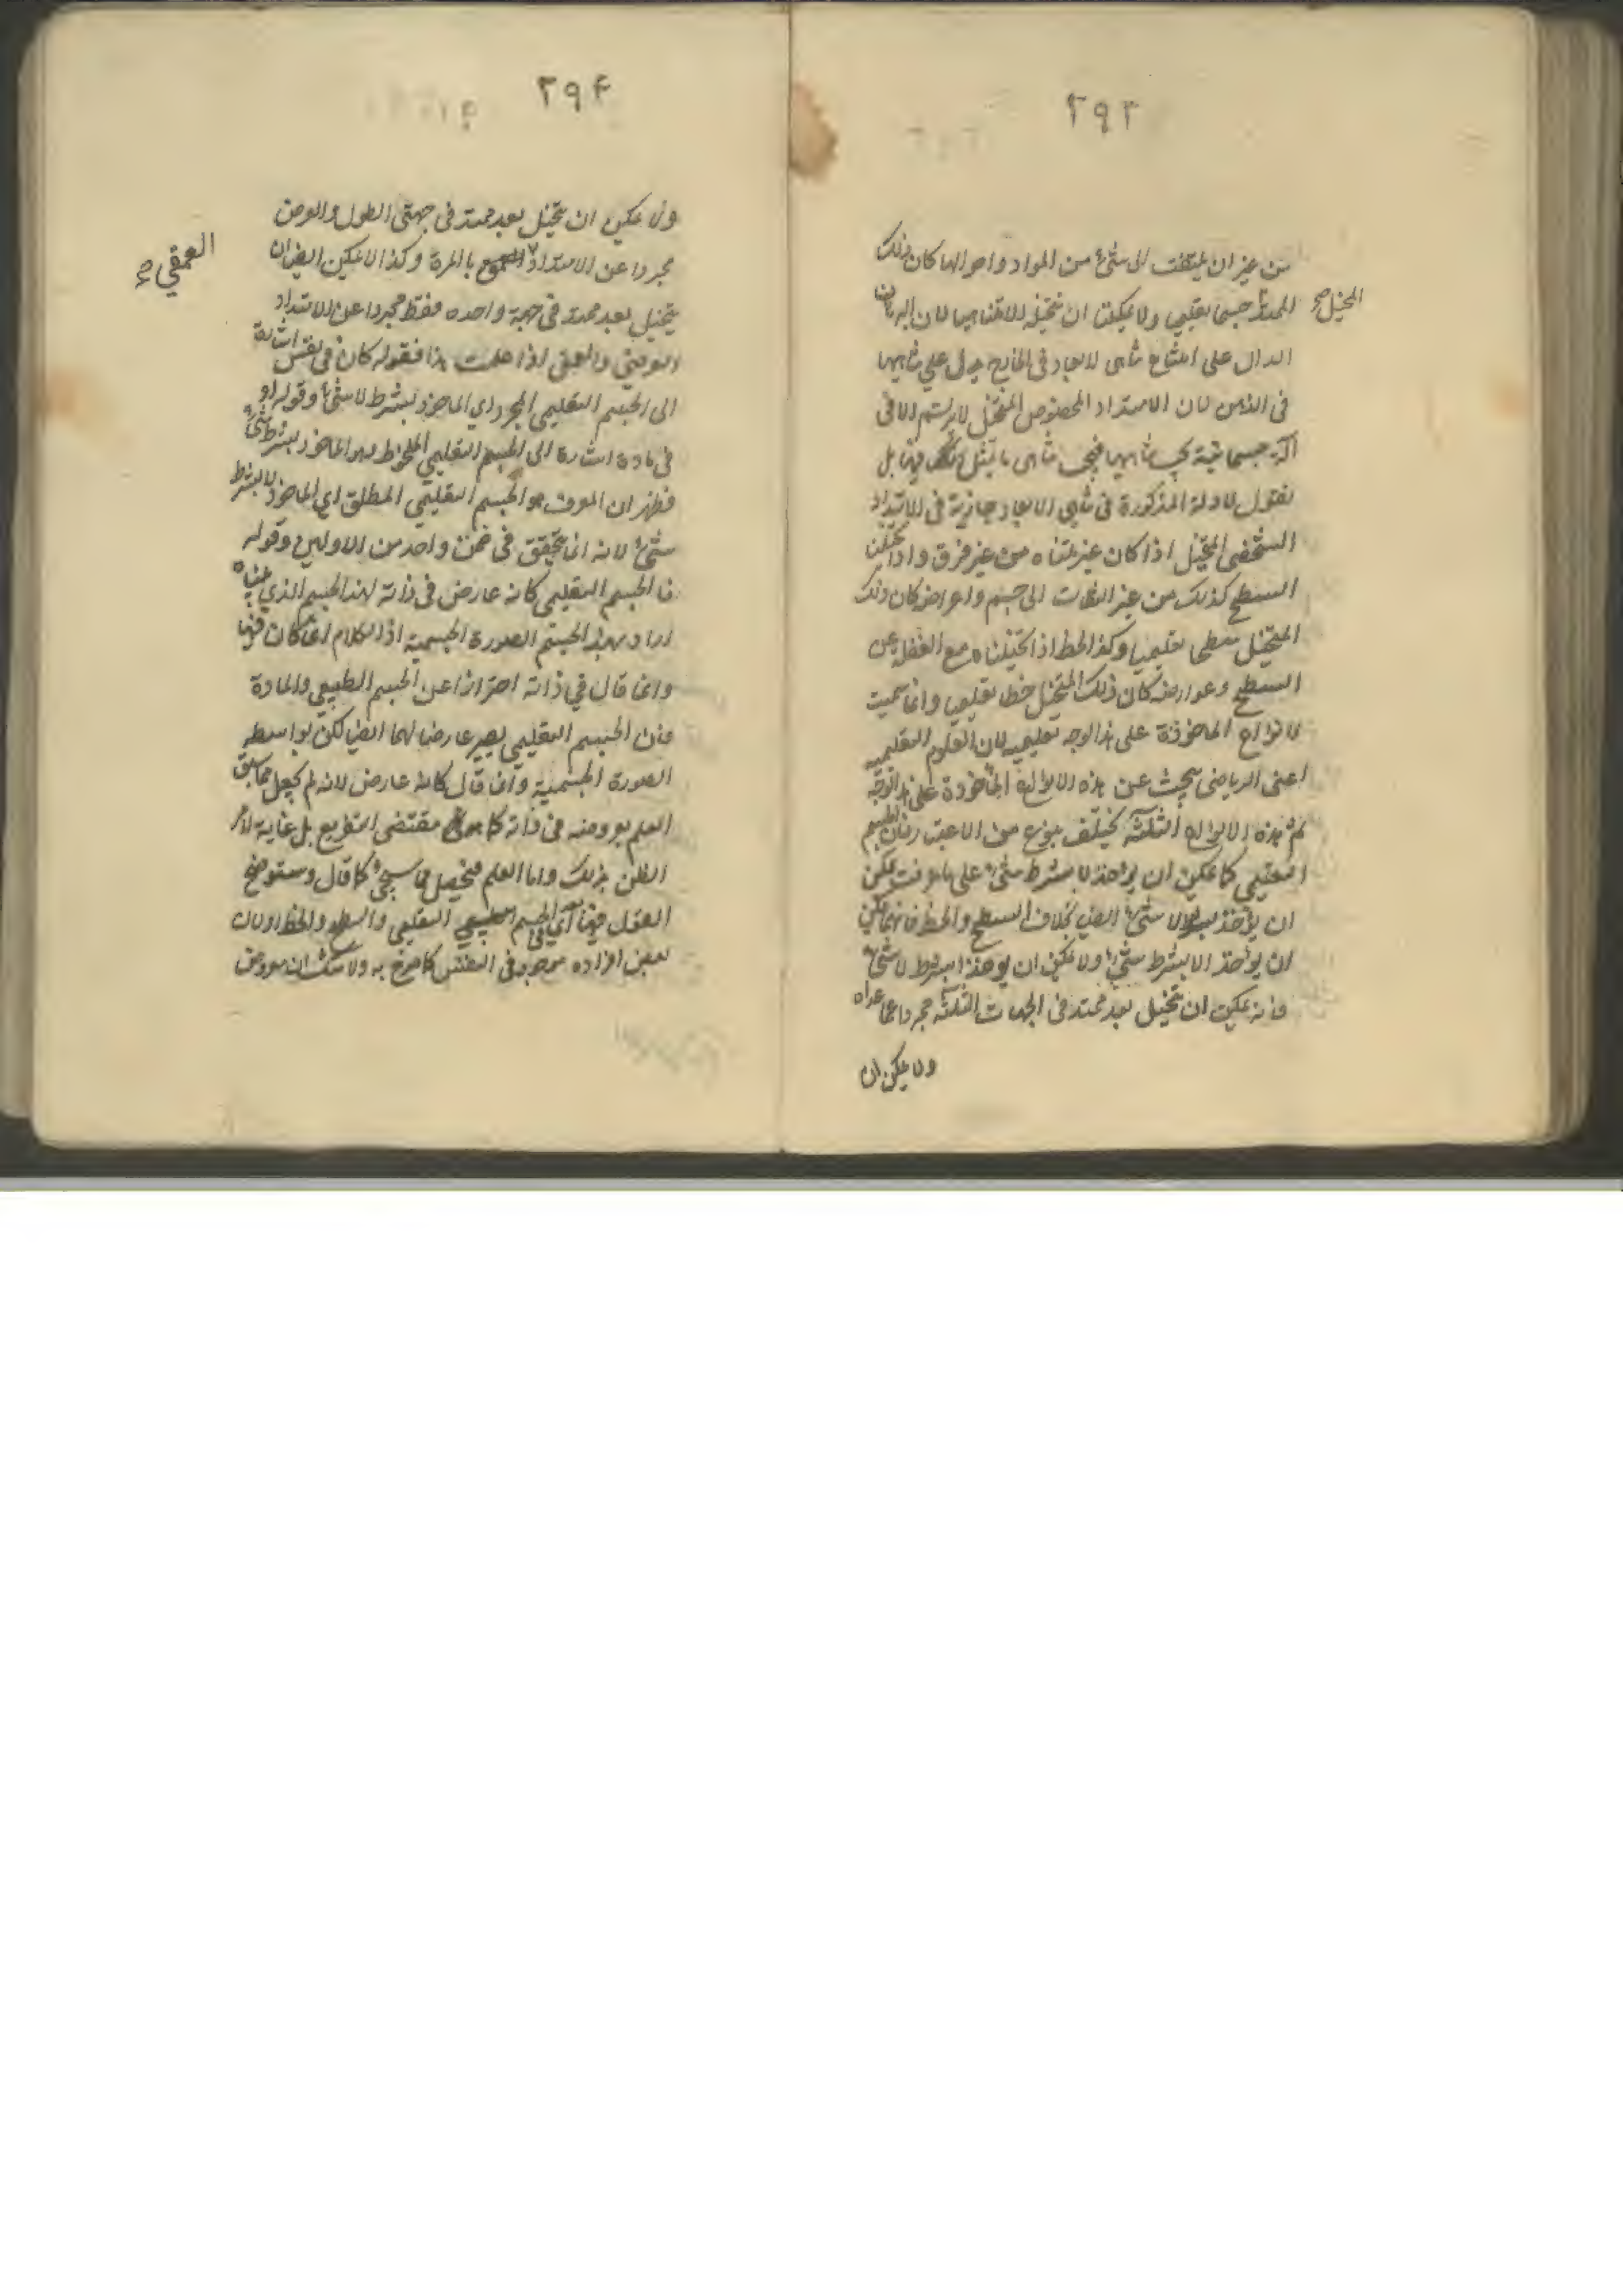 ٢٩٣
من غير ان يلتفت الى شئ من المواد واحوالها كان ذلك
المتخيل صح
الممتد جسما تعليميا ولا يمكننا ان نتخيله لا متناهيا لان البرهان
الدال على امتناع تناهى الابعاد فى الخارج يدل على تناهيها
فى الذهن لان الامتداد المخصوص المتخيل لا يرتسم الا فى
آلة جسمانية يجب تناهيها فيجب تناهى ما يتمثل فيها بل
نقول الادلة المذكورة فى تناهى الابعاد جارية فى الامتداد
الشخصى المتخيل اذا كان غير متناه من غير فرق واذا تخيلنا
السطح كذلك من غير التفات الى جسم واعراضه كان ذلك
المتخيل سطحا تعليميا وكذا الخط اذا تخيلناه مع الغفلة عن
السطح وعوارضه كان ذلك المتخيل خطا تعليميا وانما سميت
الانواع الماخوذة على هذا الوجه تعليمية لان العلوم التعليمية
اعنى الرياضى يبحث عن هذه الانواع الماخوذة على هذا الوجه
ثم هذه الانواع الثلثة يختلف بنوع من الاعتبار فان الجسم
التعليمى كما يمكن ان يؤخذ لا بشرط شئ على ما عرفت يمكن
ان يؤخذ بشرط لا شئ ايضا بخلاف السطح والخط فانهما يمكن
ان يؤخذ الا بشرط شئ ولا يمكن ان يوخذا بشرط لا شئ
فانه يمكن ان يتخيل بعد ممتد فى الجهات الثلثة مجردا عما عداه
ولا يمكن ان
٢٩٤
ولا يمكن ان يتخيل بعد ممتد فى جهتى الطول والعرض
مجردا عن الامتداد بالمرة وكذا لا يمكن ايضا ان
العمقي صح
يتخيل بعد ممتد فى جهة واحده فقط مجردا عن الامتداد
العرضى والعمقى اذا علمت هذا فقوله كان فى نفس اشارة
الى الجسم التعليمى المجرد اي الماخوذ بشرط لا شئ وقوله او
فى مادة اشارة الى الجسم التعليمي الملخوط وهو الماخوذ بشرط شئ
فظهر ان المعرف هو الجسم التعليمى المطلق اي الماخوذ لا بشرط
شئ لانه انما يتحقق فى ضمن واحد من الاولين وقوله
فالجسم التعليمى كانه عارض فى ذاته لهذا الجسم الذي بيناه
اراد بهذا الجسم الصورة الجسمية اذ الكلام انما كان فيها
وانما قال في ذاته احترازا عن الجسم الطبيعي والمادة
فان الجسم التعليمي يصير عارضا لهما ايضا لكن بواسطه
الصورة الجسمية وانما قال كانه عارض لانه لم يحصل مما سبق
العلم بعروضه فى ذاته كما هو مقتضى التفريع بل غاية الامر
الظن بذلك واما العلم فيحصل مما سيجئ كما قال وستوضح
القول فيها اي فى الجسم التعليمي والسطح والخط اولان
بعض افراده موجود فى النفس كما صرح به ولا شك ان عروض